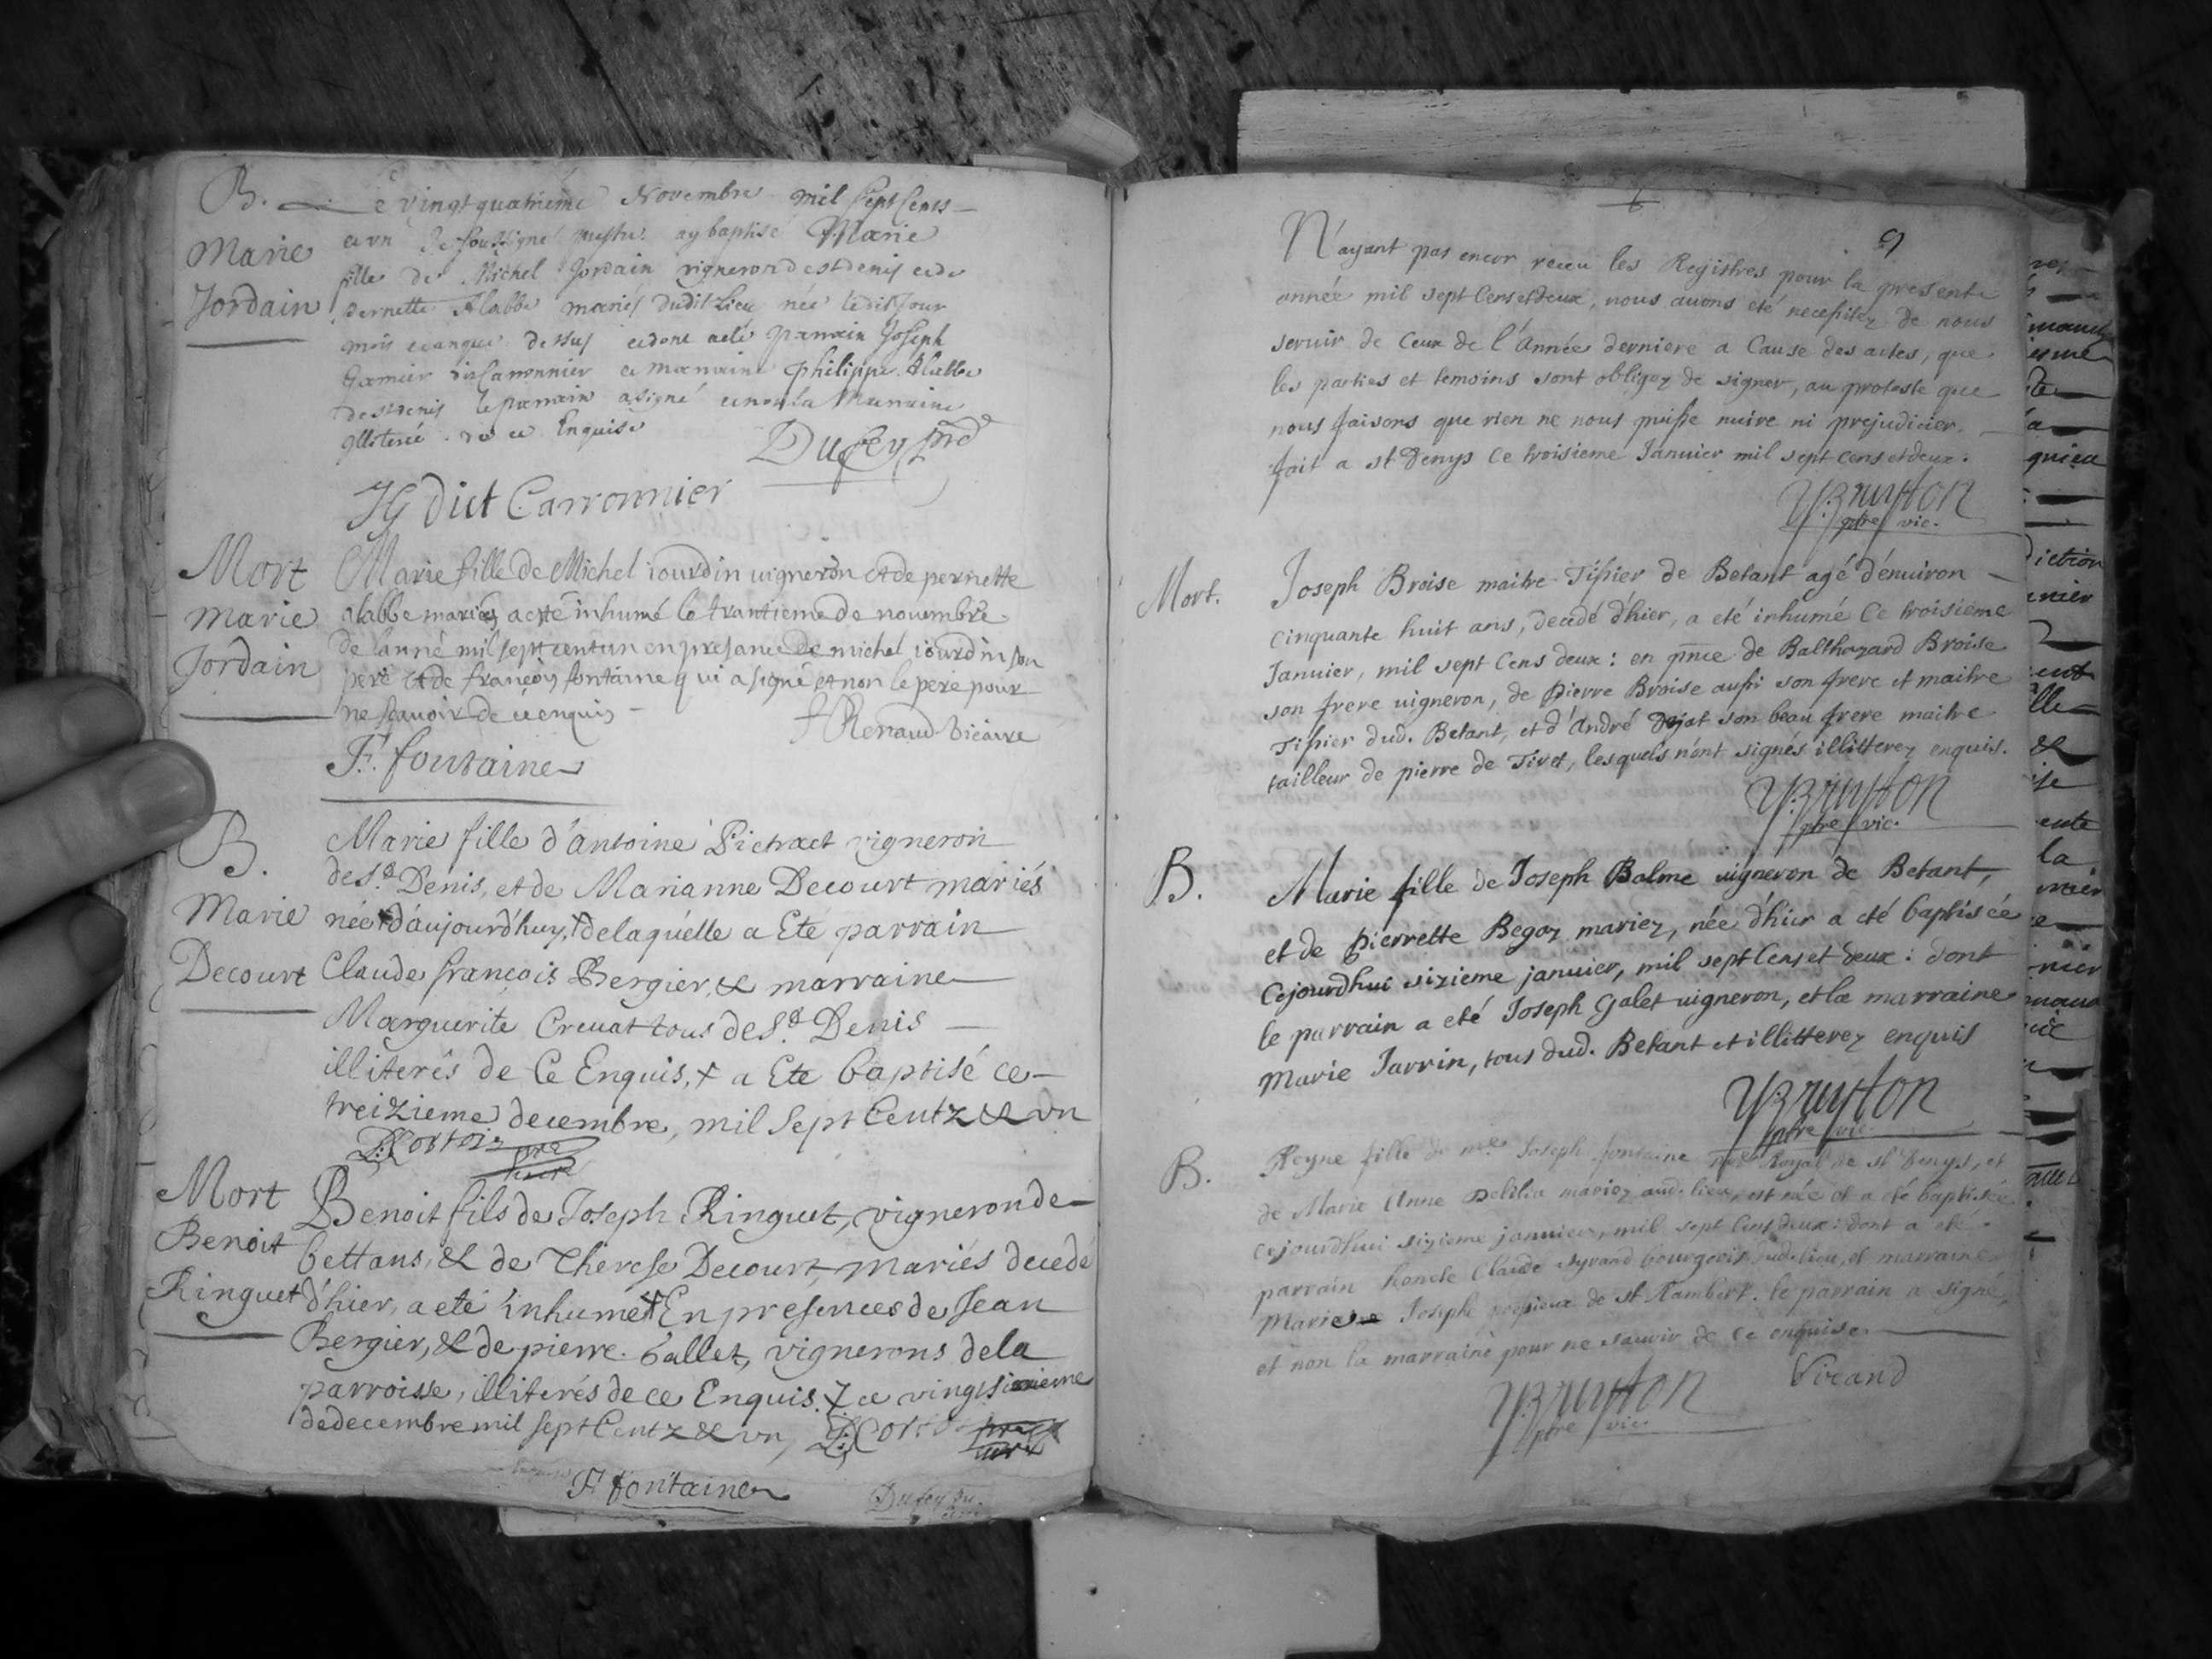 B. e vingt quatrieme Novembre mil sept cents
et un Je soussigné ay baptisé Marie
Marie
fille de Michel Jordain vigneron de st denis et de
Jordain
pernette Alabbe mariés dudit Lieu née ledit Jour
mois et an que dessus et dont a eté parrain Joseph
Garnier dit Carronnier et marraine Philippe Alabbe
de st denis le parrain a signé et non la marraine
illiterée de ce Enquise
Dufey
JG dict Carronnier
Mort
Marie
Jordain
Marie fille de Michel iourdin uigneron et de pernette
alabbe mariés a esté inhumé le trantieme de nouembre
de lanné mil sept cent un en presance de michel iourdin son
pere et de françois fontaine qui a signé et non le pere pour
ne scauoir de ce enquis
Renaud vicaire
F. fontaine
B.
Marie
Decourt
Marie fille d'antoine Pietract vigneron
de St Denis, et de Marianne Decourt mariés
née d'aujourd'huy, + de laquelle a Ete parrain
Claude françois Bergier, & marraine
Marguerite Creuat tous de St Denis
illiterés de Ce Enquis, + a Ete baptisé ce
treizieme decembre, mil Sept Centz & vn
Mort
Benoit
Ringuet
Benoit fils de Joseph Ringuet, vigneron de
bettans, & de Therese Decourt, mariés decedé
d'hier, a eté inhumé + En presences de Jean
Bergier, & de pierre ballet, vignerons de la
parroisse, illiterés de ce Enquis. + ce vingt
de decembre mil sept Centz & vn,
F. fontaine
Dufey
9
N'ayant pas encor receu les Registres pour la presente
année mil sept Cens et deux, nous auons eté necessitez de nous
seruir de Ceux de l'Année derniere a Cause des actes, que
les parties et temoins sont obligez de signer, au proteste que
nous faisons que rien ne nous puisse nuire ni prejudicier.
fait a st Denys Ce troisieme Januier mil sept cens et deux.
Bruyton
ptre vic.
Mort.
Joseph Broise maitre Tissier de Betant agé d'enuiron
cinquante huit ans, decedé d'hier, a eté inhumé Ce troisieme
Januier, mil sept Cens deux: en pnce de Balthazard Broise
son frere uigneron, de Pierre Broise aussi son frere et maitre
Tissier dud. Betant, et d'André Dejat son beau frere maitre
tailleur de pierre de Tiret, lesquels n'ont signés illitterez enquis.
Bruyton
ptre vic.
B.
Marie fille de Joseph Balme uigneron de Betant,
et de Pierrette Begoz mariez, née d'hier a eté baptisée
Cejourdhui sizieme januier, mil sept Cens et deux: dont
le parrain a eté Joseph Galet uigneron, et la marraine
Marie Jarrin, tous dud. Betant et illitterez enquis
Bruyton
ptre vic.
B.
Reyne fille de me Joseph fontaine Royal de st Denys, et
de Marie Anne Delilia mariez aud. lieu, est née et a eté baptisée
cejourdhui sizieme januier, mil sept Cens deux: dont a eté
parrain honete Claude Syrand bourgeois dud. lieu, et marraine
Marie Josephe de st Rambert. le parrain a signé,
et non la marraine pour ne sauoir de Ce enquise.
Sirand
Bruyton
ptre vic.